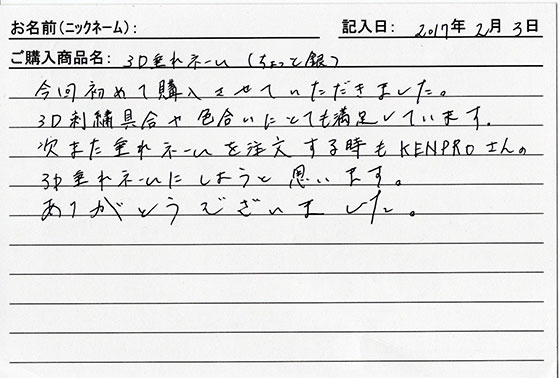 お名前(ニックネーム): 記入日: 2017年 2月 3日
ご購入商品名: 3D垂れネーム(ちょっと銀)
今回初めて購入させていただきました。
3D刺繍具合や色合いにとても満足しています。
次また垂れネームを注文する時もKENPROさんの
3D垂れネームにしようと思います。
ありがとうございました。